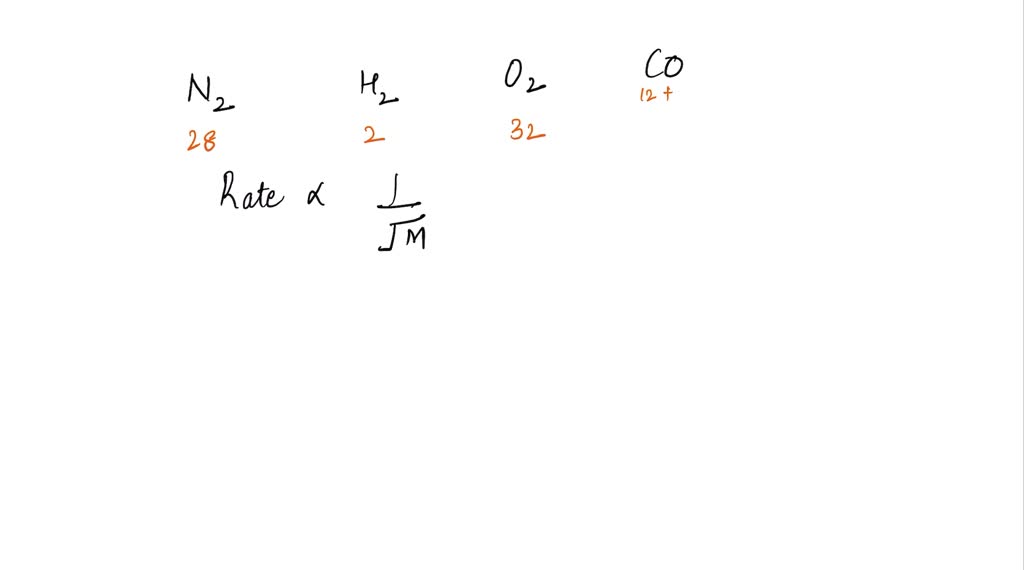 N₂ H₂ O₂ CO
28 2 32 12 +
Rate ∝ 1/√M